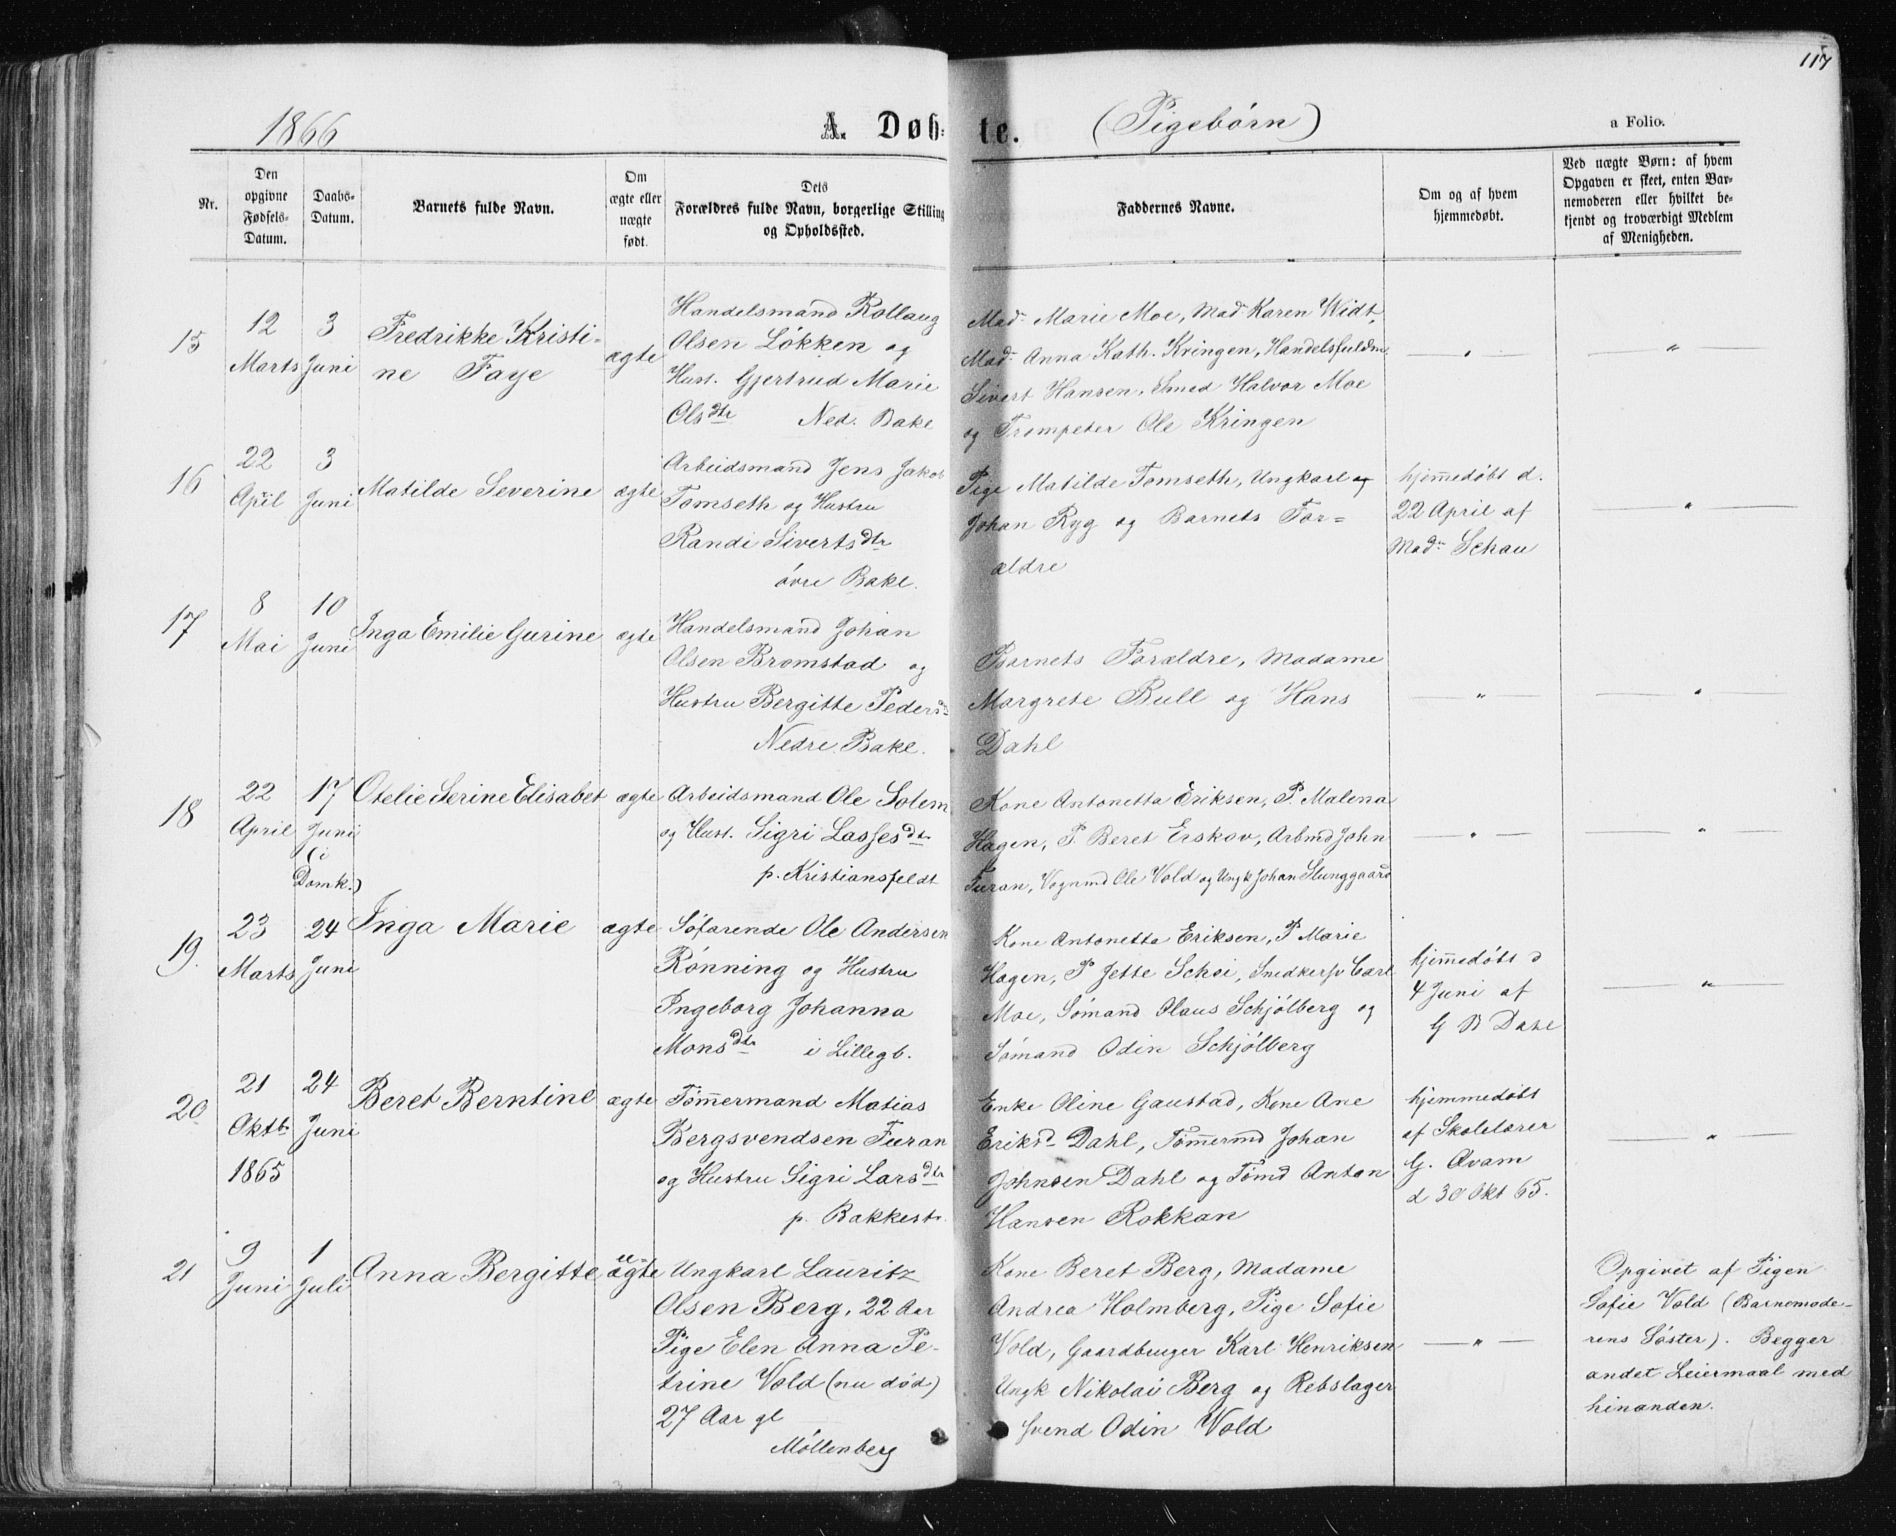 117
1866 A. Døb- te. (Pigebørn) a Folio.
Nr.
Den opgivne Fødsels-Datum.
Daabs-Datum.
Barnets fulde Navn.
Om ægte eller uægte født.
Dets Forældres fulde Navn, borgerlige Stilling og Opholdssted.
Faddernes Navne.
Om og af hvem hjemmedøbt.
Ved uægte Børn: af hvem Opgaven er skeet, enten Barnemoderen eller hvilket bekjendt og troværdigt Medlem af Menigheden.
15
12 Marts
3 Juni
Fredrikke Kristi-
ne Faye
ægte
Handelsmand Rollaug
Olsen Løkken og
Hust. Gjertrud Marie
Olsdtr Ned. Bake
Mad. Marie Moe, Mad. Karen Widt,
Mad. Anna Kath. Kringen, Handelsfuldm.
Sivert Hansen, Smed Halvor Moe
og Trompeter Ole Kringen
— " —
— " —
16
22 April
3 Juni
Matilde Severine
ægte
Arbeidsmand Jens Jakob
Tomseth og Hustru
Randi Sivertsdtr
øvre Bake.
Pige Matilde Tomseth, Ungkarl og
Johan Ryg og Barnets For=
ældre
hjemmedøbt d.
22 April af
Mad. Schau
— " —
17
8 Mai
10 Juni
Inga Emilie Gurine
ægte
Handelsmand Johan
Olsen Bromstad og
Hustru Bergitte Pedersd
Nedre Bake.
Barnets Forældre, Madame
Margrete Bull og Hans
Dahl
— " —
— " —
18
22 April
17 Juni
(i Domk.)
Otelie Serine Elisabet
ægte
Arbeidsmand Ole Solem
og Hust. Sigri Lassesdtr
p. Kristiansfeldt
Kone Antonetta Eriksen, P. Malena
Hagen, P. Beret Erskov, Arbmd John
Furan, Vognmd Ole Vold og Ungk Johan Slunggaard
— " —
— " —
19.
23 Marts
24 Juni
Inga Marie
ægte
Søfarende Ole Andersen
Rønning og Hustru
Ingeborg Johanna
Monsdtr i Lillegb.
Kone Antonetta Eriksen, P. Marie
Hagen, P Jette Schei, Snedkersv Carl
Moe, Sømand Olaus Schjølberg og
Sømand Odin Schjølberg
hjemmedøbt d
4 Juni af
G B Dahl
— " —
20
21 Oktb. 1865
24 Juni
Beret Berntine
ægte
Tømmermand Matias
Bergsvendsen Furan
og Hustru Sigri Larsdtr
p. Bakkest.
Enke Oline Gaustad, Kone Ane
Eriksd Dahl, Tømmermd Johan
Johnsen Dahl og Tømd Anton
Hansen Rokkan
hjemmedøbt
af Skolelærer
G. Qvam
d 30 Okt 65.
— " —
21
9 Juni
1 Juli
Anna Bergitte
uægte
Ungkarl Lauritz
Olsen Berg, 22 Aar
Pige Elen Anna Pe-
trine Vold (nu død)
27 Aar gl
Møllenberg
Kone Beret Berg, Madame
Andrea Holmberg, Pige Sofie
Vold, Gaardbruger Karl Henriksen
Ungk Nikolai Berg og Rebslager
svend Odin Vold
— " —
Opgivet af Pigen
Sofie Vold (Barnemode-
rens Søster). Begges
andet Leiermaal med
hinanden.